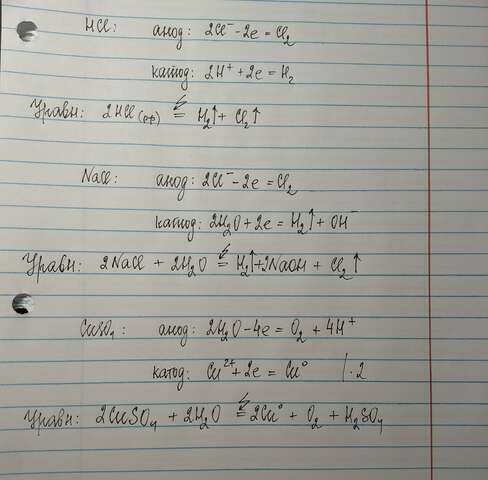 HCl: анод: 2Cl⁻ - 2e = Cl₂
катод: 2H⁺ + 2e = H₂
Уравн: 2HCl (рр) = H₂↑ + Cl₂↑
NaCl: анод: 2Cl⁻ - 2e = Cl₂
катод: 2H₂O + 2e = H₂↑ + OH⁻
Уравн: 2NaCl + 2H₂O = H₂↑ + 2NaOH + Cl₂↑
CuSO₄: анод: 2H₂O - 4e = O₂ + 4H⁺
катод: Cu²⁺ + 2e = Cu⁰ | · 2
Уравн: 2CuSO₄ + 2H₂O = 2Cu⁰ + O₂ + H₂SO₄